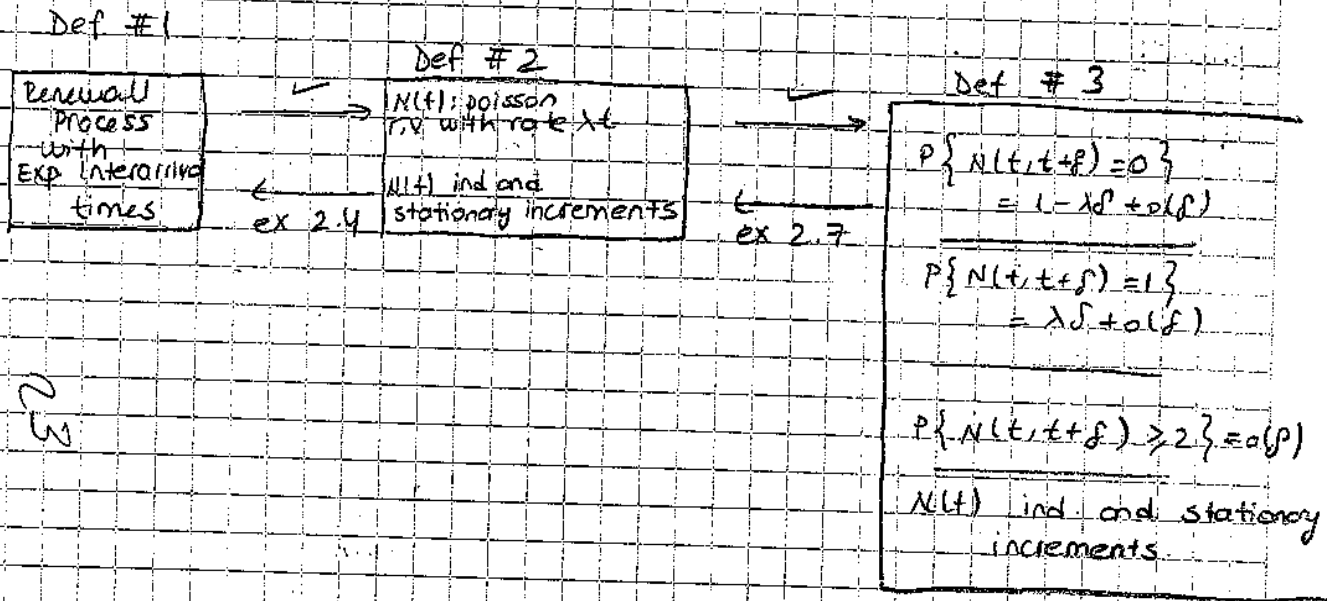 Def #1
Renewall
Process
with
Exp Interarriva
times
✓
ex 2.4
Def #2
N(t): poisson
r.v with rate λt
N(t) ind and
stationary increments
✓
ex 2.7
Def # 3
P{ N(t, t+δ) = 0 }
= 1 - λδ + o(δ)
P{ N(t, t+δ) = 1 }
= λδ + o(δ)
P{ N(t, t+δ) ≥ 2 } = o(δ)
N(t) ind. and stationary
increments.